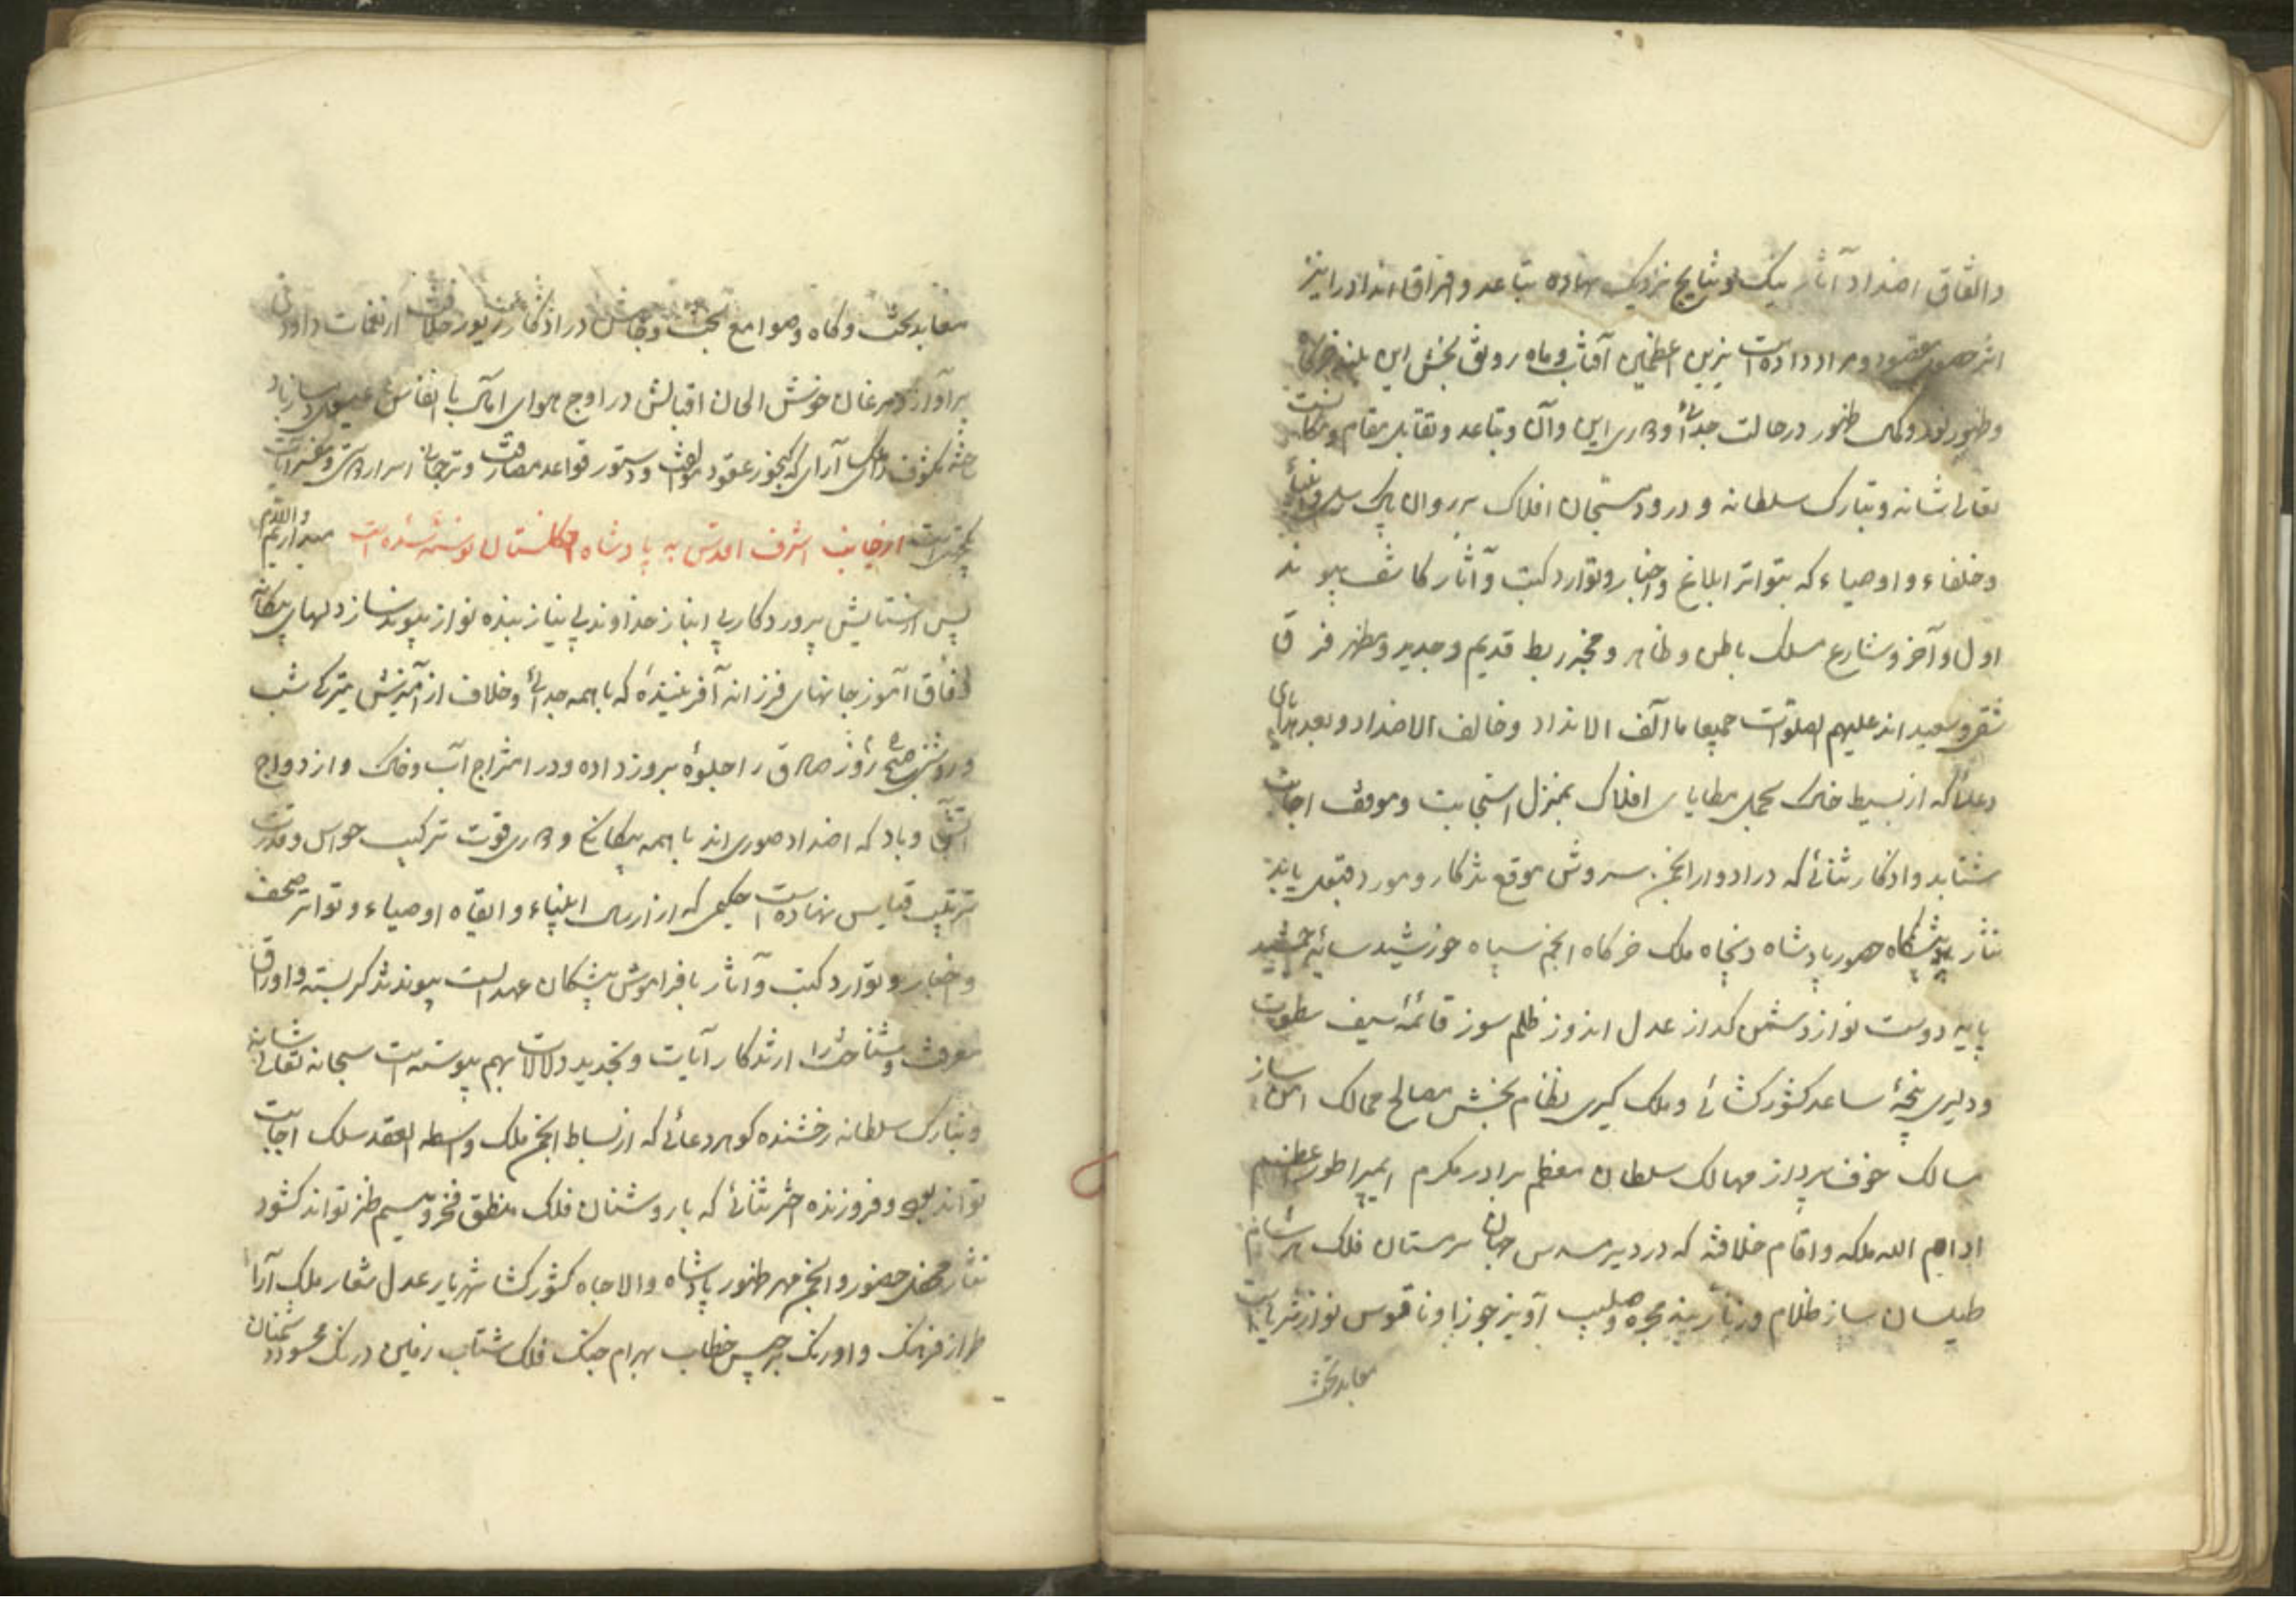 واتفاق اضداد آثار نیک و نتایج نزدیک نهاده تباعد و افتراق انداد را نیز
اثر حصول مقصود و مراد داده است نیرین اعظمین آفتاب و ماه رونق بخش این بلند
وظهور نور و کمال ظهور در حالت جدائی و دوری این و آن و تباعد و تقابل مقام و مکان است
تعالی شانه و تبارک سلطانه و درود سبحان افلاک بر روان پاک رسل و انبیاء
و خلفاء و اوصیاء که بتواتر ابلاغ و اخبار و توارد کتب و آثار کاشف پیوند
اول و آخر و شارع مسلک باطن و ظاهر و مخبر ربط قدیم و جدید و مظهر فرق
شقی و سعید اند علیهم الصلوات جمیعا ما آلف الانداد و خالف الاضداد و بعد
دعائی که از بسیط خاک محمل مطایای افلاک بمنزل استجابت و موقف اجابت
شتابد و اذکار ثنائی که در ادوار انجمن سروش موقع تذکار و مورد قبول یابد
نثار پیشگاه حضور پادشاه دنجاه ملک خرگاه انجم سپاه خورشید سایه جمشید
پایه دوست نواز دشمن گداز عدل اندوز ظلم سوز قائمه سیف سطوت
و دلیری پنجه ساعد کشور گشائی و ملک گیری نظام بخش مصالح ممالک امن ساز
مسالک خوف پرداز مهالک سلطان معظم برادر مکرم ایمپراطور اعظم
ادام الله ملکه و اقام خلافته که در دیر مسدس جهان پرستان فلک
طیلسان ساز ظلام و زنار بند مجره و صلیب آویز جوزا و ناقوس نواز ثریاست
معابد تحت
معابد تحت وگاه و صوامع بخت در اذکار زبور خلافت از نغمات داودی
پرآواز و مرغان خوش الحان اقبالش در اوج هوای امانی با انفاس عیسوی دمساز باد
مکشوف رای ملک آرای که گنجور عقود موالفت و دستور قواعد مصادقت و ترجمان اسرار
از جانب اشرف اقدس به پادشاه انگلستان نوشته شده است
پس از ستایش پروردگار بی انباز خداوند بی نیاز بنده نواز پیوند ساز دلهای بیگانه
وفاق آموز جانهای فرزانه آفریننده که با همه جدائی و خلاف از آمیزش تیرگی شب
و روشنی صبح روز صادق را جلوه بروز داده و در امتزاج آب و خاک و ازدواج
آتش و باد که اضداد صوری اند با همه بیگانگی و دوری قوت ترکیب حواس و قدرت
ترتیب قیاس نهاده است حکیمی که از ارسال انبیاء و ابقاء اوصیاء و تواتر صحف
و اخبار و توارد کتب و آثار با فراموش پیشگان عهد الست پیوند تذکر بسته و اوراق
معرفت و شناخت را از تذکار آیات و تجدید دلالات بهم پیوسته است سبحانه تعالی شانه
و تبارک سلطانه رخشنده گوهر دعائی که از بساط انجم ملک واسطه العقد سلک اجابت
تواند بود و فروزنده اختر ثنائی که با روشنان فلک منطق فخر و میسم طنز تواند گشود
نثار محفل حضور و انجمن مهر ظهور پادشاه والاجاه کشور گشا شهریار عدل شعار ملک آرا
طراز فرهنگ و اورنگ برجیس خطاب بهرام جنگ فلک شتاب زمین درنگ محسود دشمنان